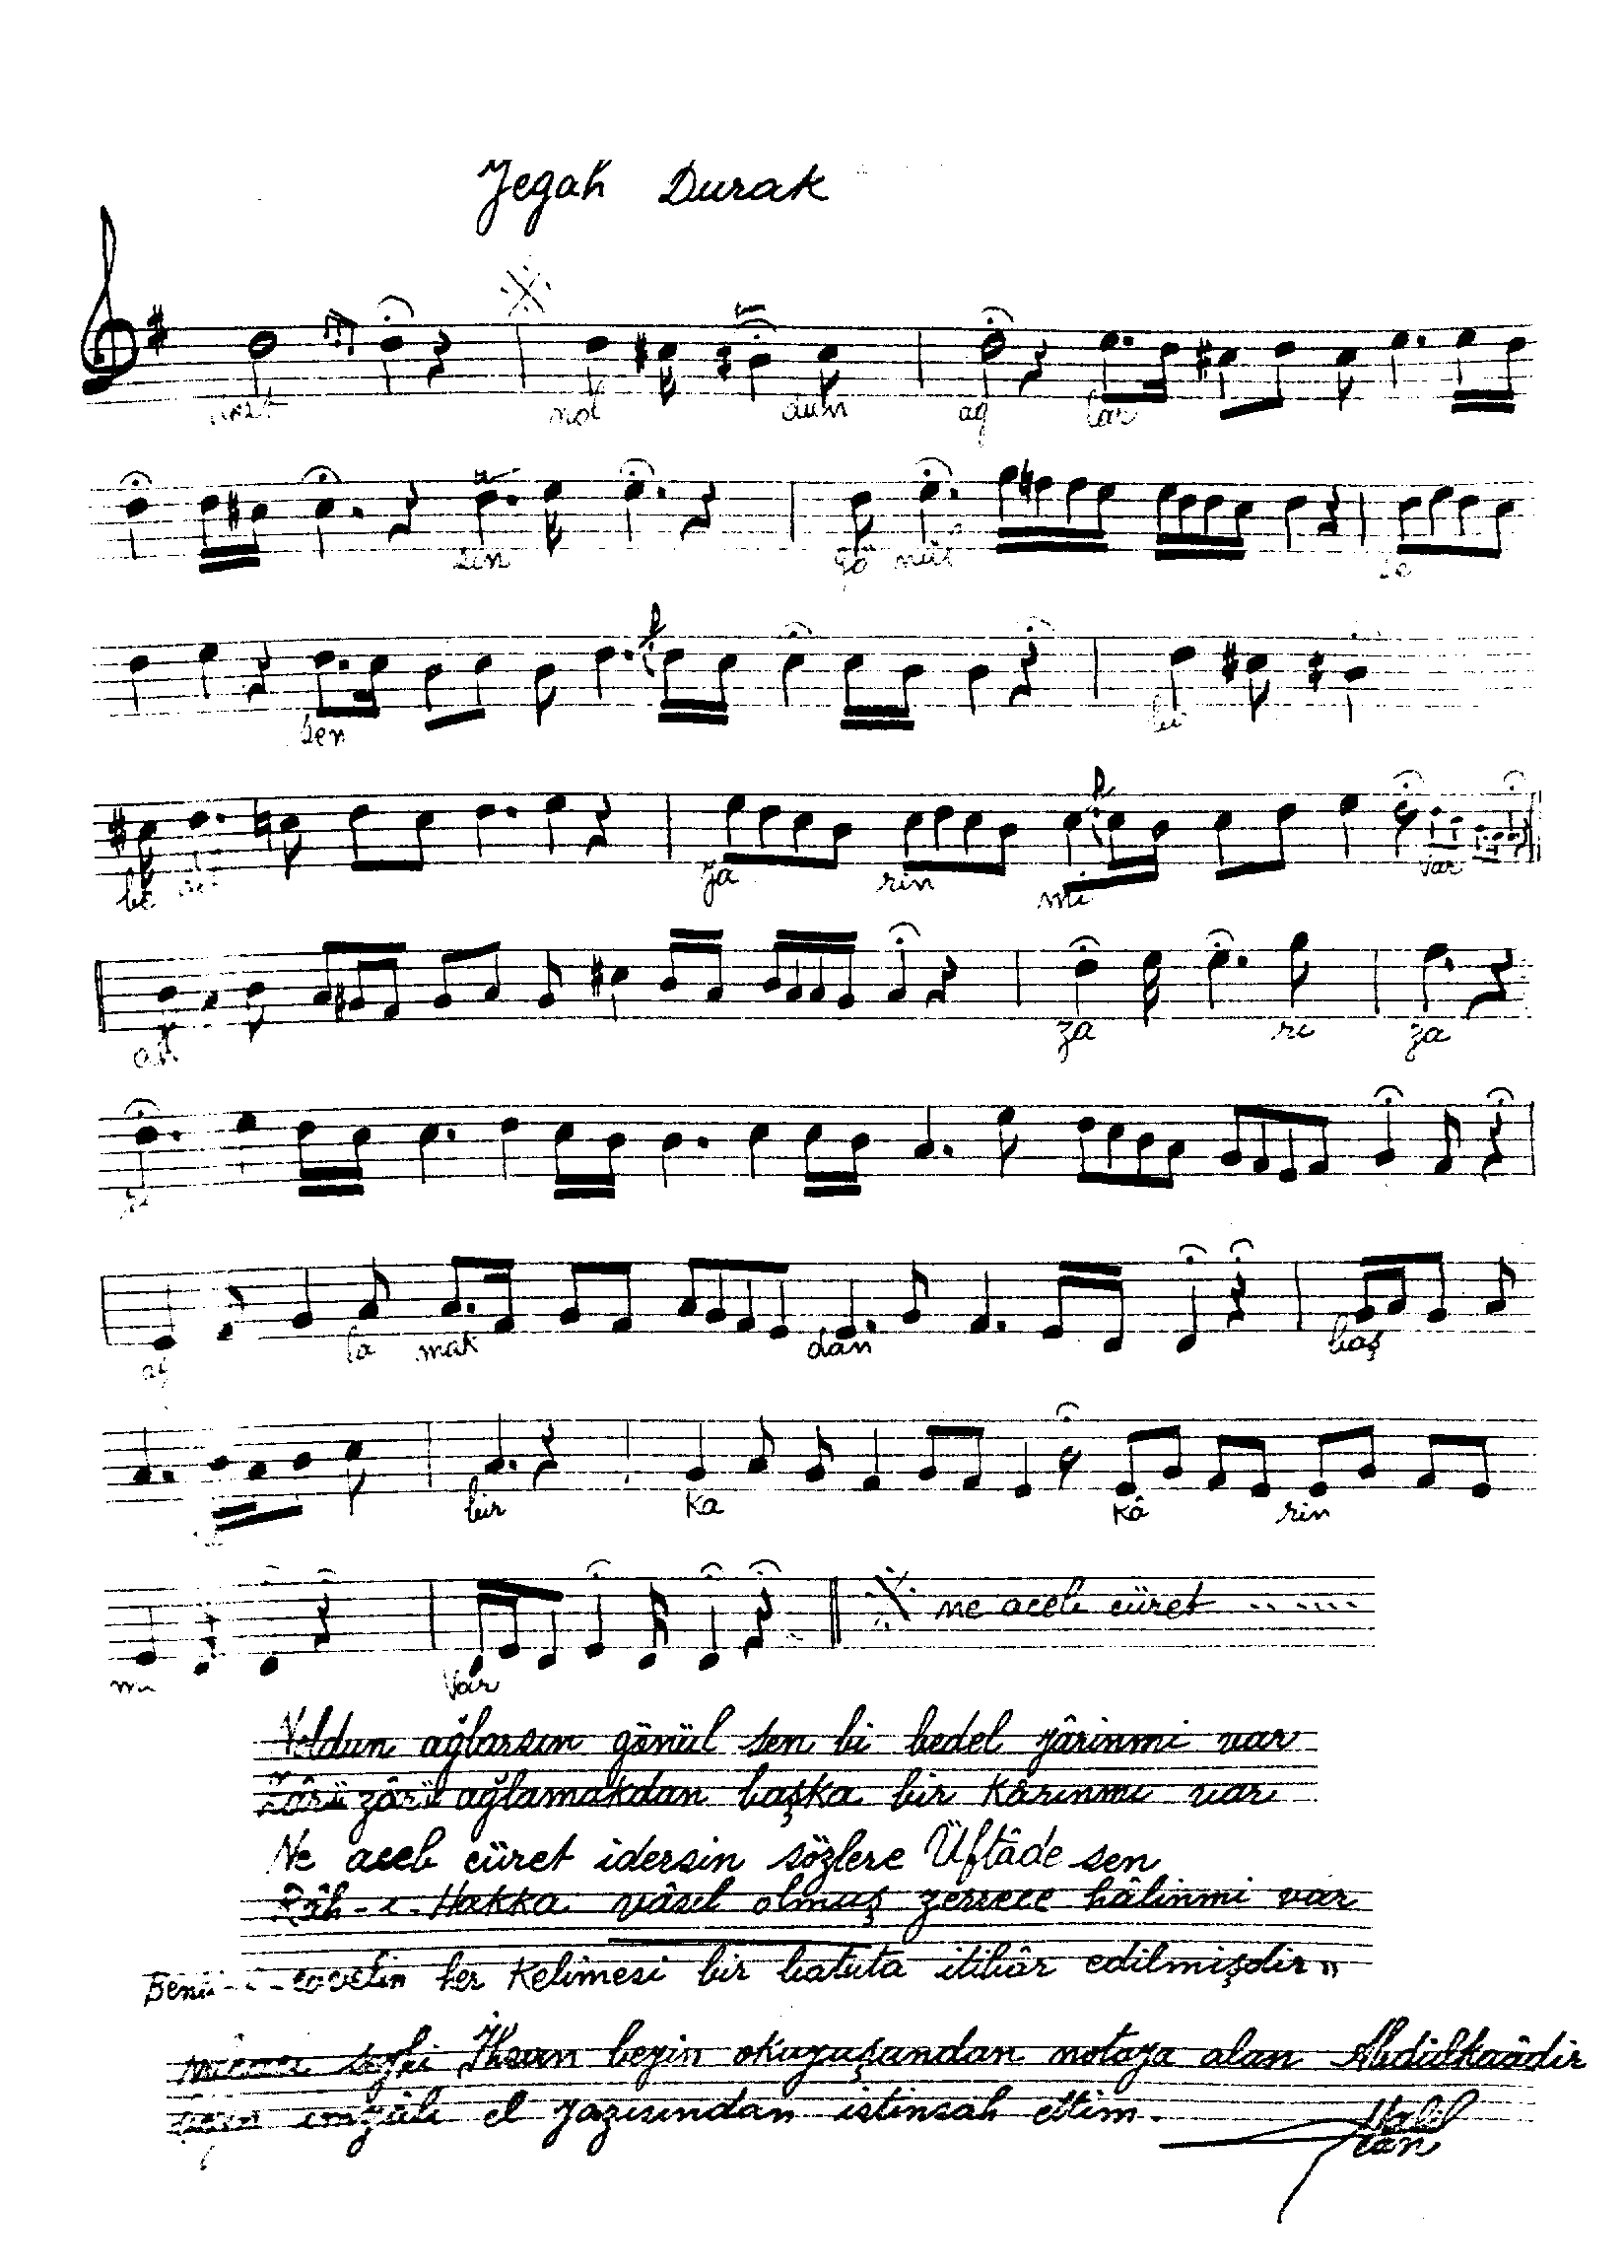 Yegah Durak
dost nol dum ağ lar
sın gö nül se
sen bi
be del ya rin mi var
ah za ri za
ri
ağ la mak dan baş
bir ka kâ rın
mı var ne aceb cüret
N'oldun ağlarsın gönül sen bi bedel yârinmi var
Zârü zârü ağlamakdan başka bir kârınmı var
Ne aceb cüret idersin sözlere Üftâde sen
Râh-ı-Hakka vâsıl olmuş zerrece hâlinmi var
her kelimesi bir batuta itibâr edilmişdir
İhsan beyin okuyuşundan notaya alan Abdülkaadir
imzâlı el yazısından istinsah ettim.
Halil
Can